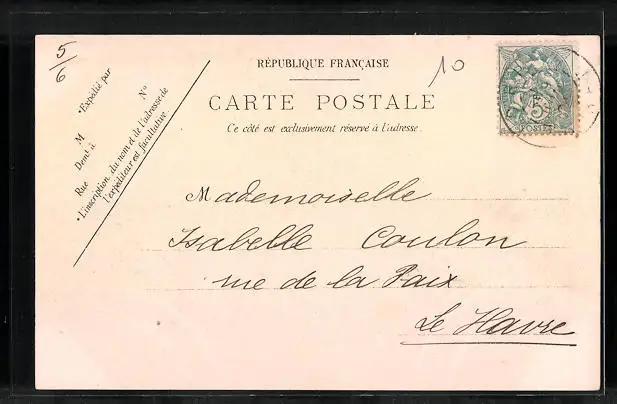 5/6
RÉPUBLIQUE FRANÇAISE
10
CARTE POSTALE
Ce côté est exclusivement réservé à l'adresse.
Expédié par
M
Demt à
Rue Nº
L'inscription du nom et de l'adresse de
l'expéditeur est facultative
5
POSTES
Mademoiselle
Isabelle Coulon
rue de la Paix
Le Havre